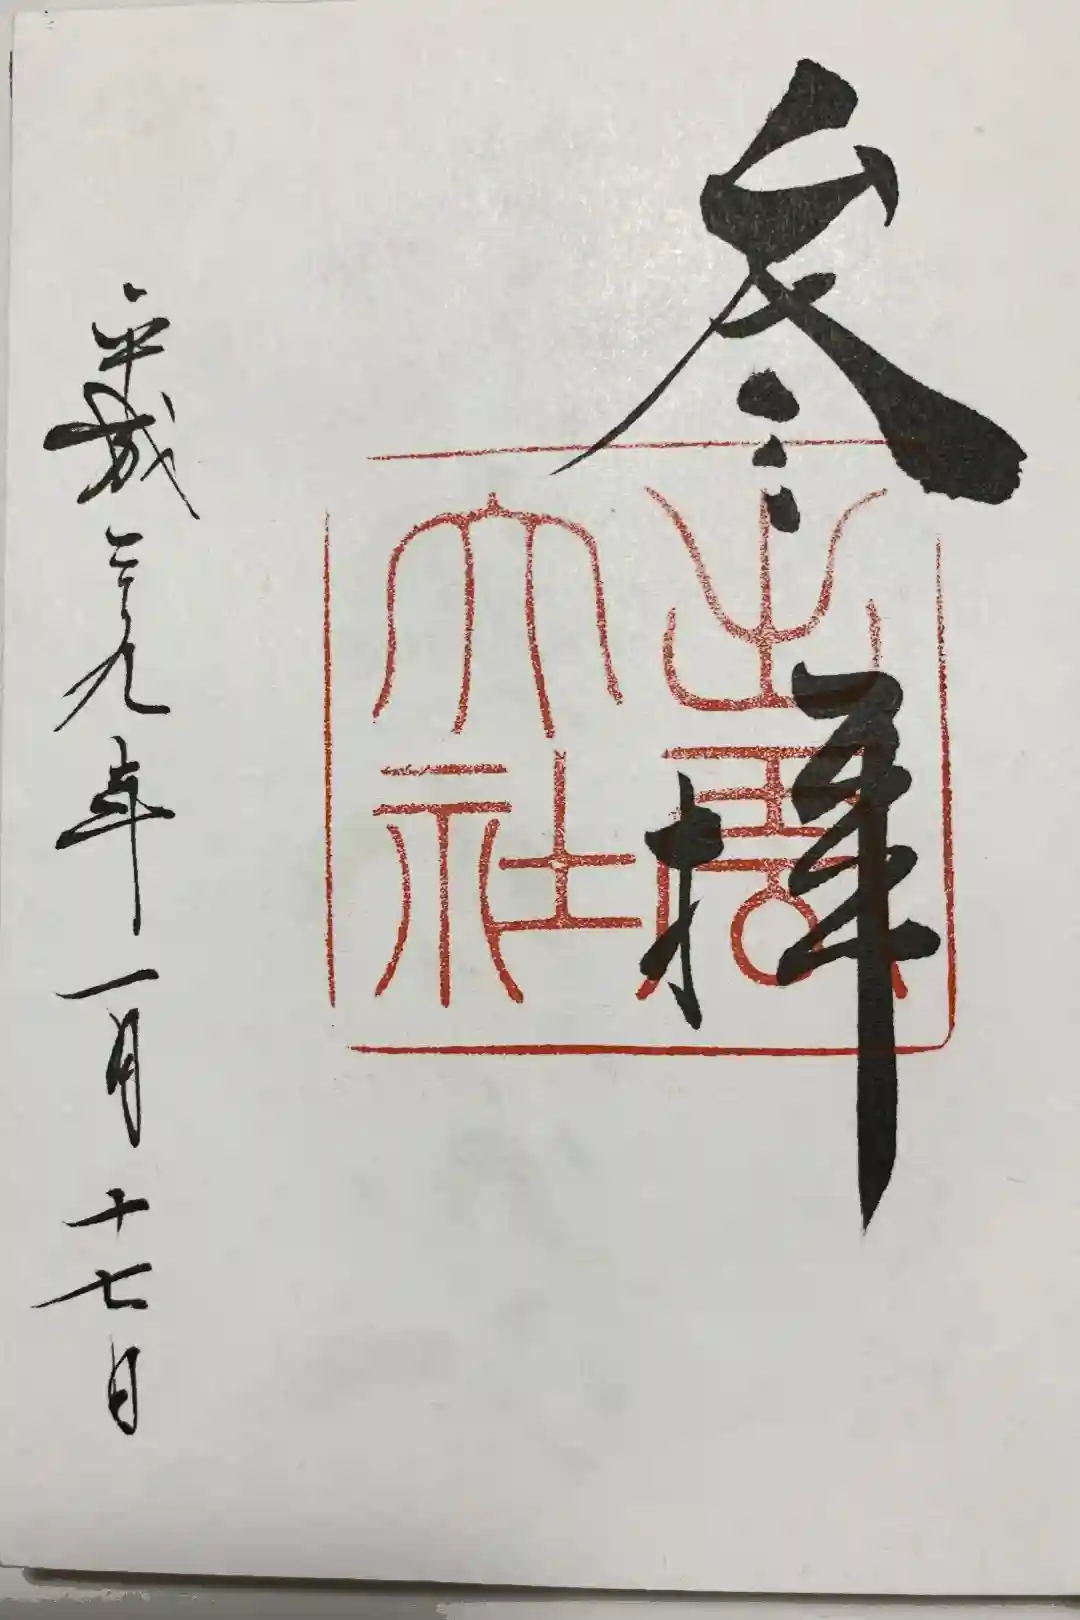 参拝
出雲
大社
平成二十九年一月十七日